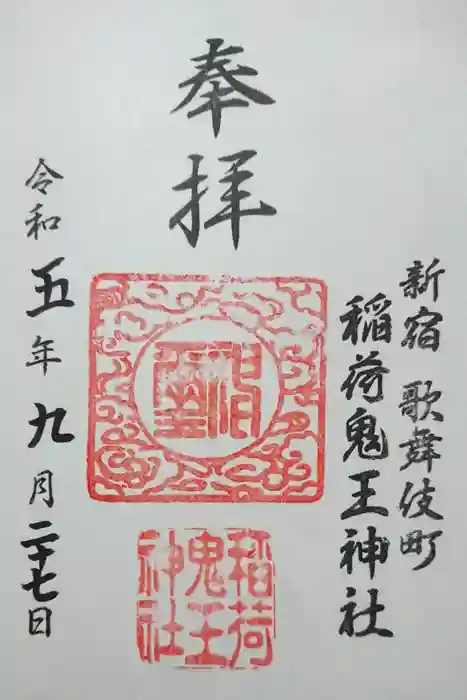 新宿 歌舞伎町
稲荷鬼王神社
奉拝
稲荷
鬼王
神社
令和五年九月二十七日